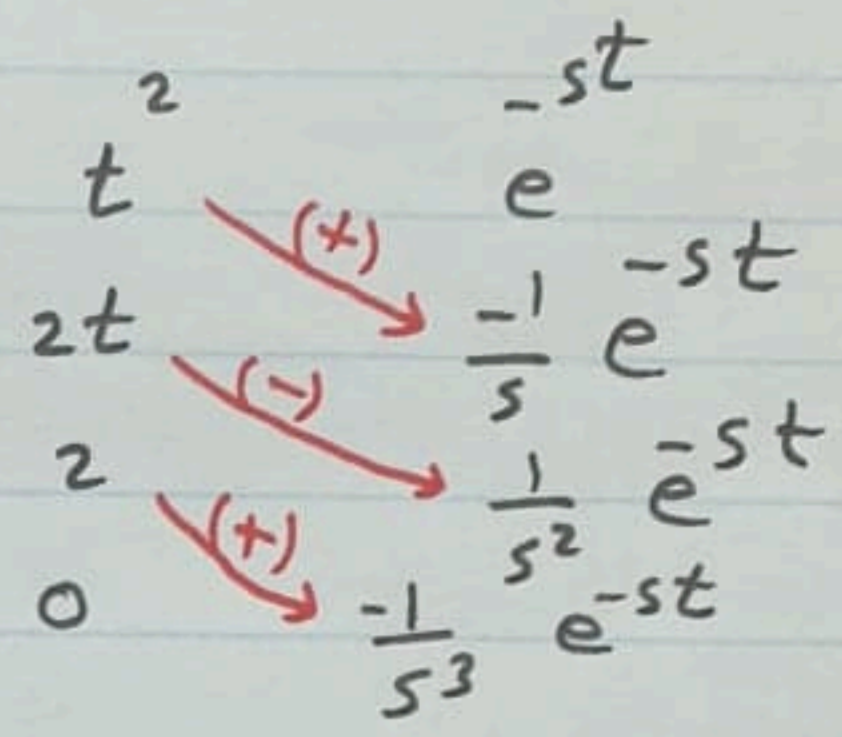 t² e^{-st}
(+)
2t -1/s e^{-st}
(-)
2 1/s² e^{-st}
(+)
0 -1/s³ e^{-st}